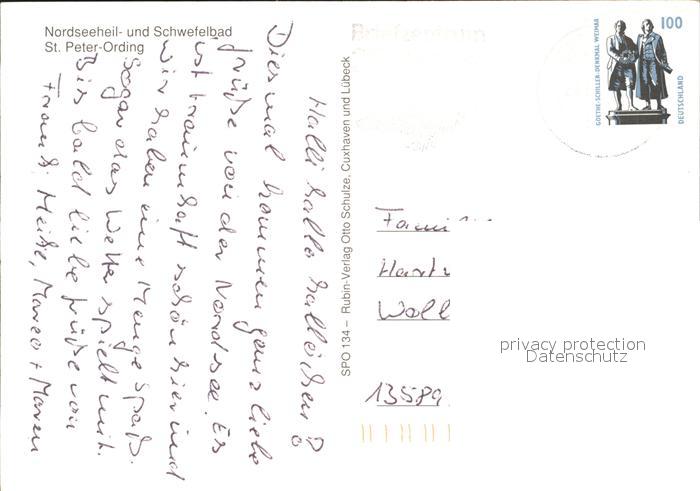 Nordseeheil- und Schwefelbad
St. Peter-Ording
Halli hallo hallöchen!
Diesmal kommen ganz liebe
Grüße von der Nordsee. Es
ist traumhaft schön hier und
wir haben eine Menge Spaß.
Sogar das Wetter spielt mit.
Bis bald liebe Grüße von
Frank, Heike, Marco + Maren
SPO 134 – Rubin-Verlag Otto Schulze, Cuxhaven und Lübeck
Briefzentrum
GOETHE-SCHILLER-DENKMAL WEIMAR
100
DEUTSCHLAND
Fami
Wall
13589
privacy protection
Datenschutz